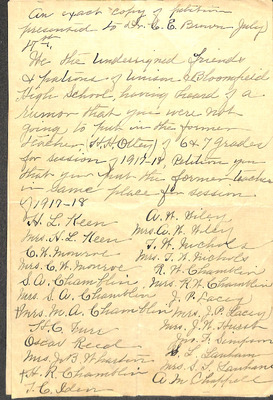 An exact copy of petition
presented to Dr. C. E. Brown July
4th,
We the undersigned friends
& patrons of Unison & Bloomfield
High School, having heard of a
rumor that you were not
going to put in the former
teacher (H. H. Otley) of 6 & 7 grades
for session of 1917-18. Petition you
that you put the former teacher
in same place for session
of 1917-18
H. L. Keen
Mrs. H. L. Keen
C. W. Monroe
Mrs. C. W. Monroe
S. A. Chamblin
Mrs. S. A. Chamblin
Mrs. M. A. Chamblin
H. C. Furr
Oscar Reed
Mrs. J. B. Wharton
H. R. Chamblin
T. C. Iden
A. W. Wiley
Mrs. A. W. Wiley
T. W. Nichols
Mrs. T. W. Nichols
R. W. Chamblin
Mrs. R. W. Chamblin
J. P. Lacey
Mrs. J. P. Lacey
Mrs. J. W.
Jos. F. Simpson
S. F. Lanham
Mrs. S. F. Lanham
A. M. Chappell